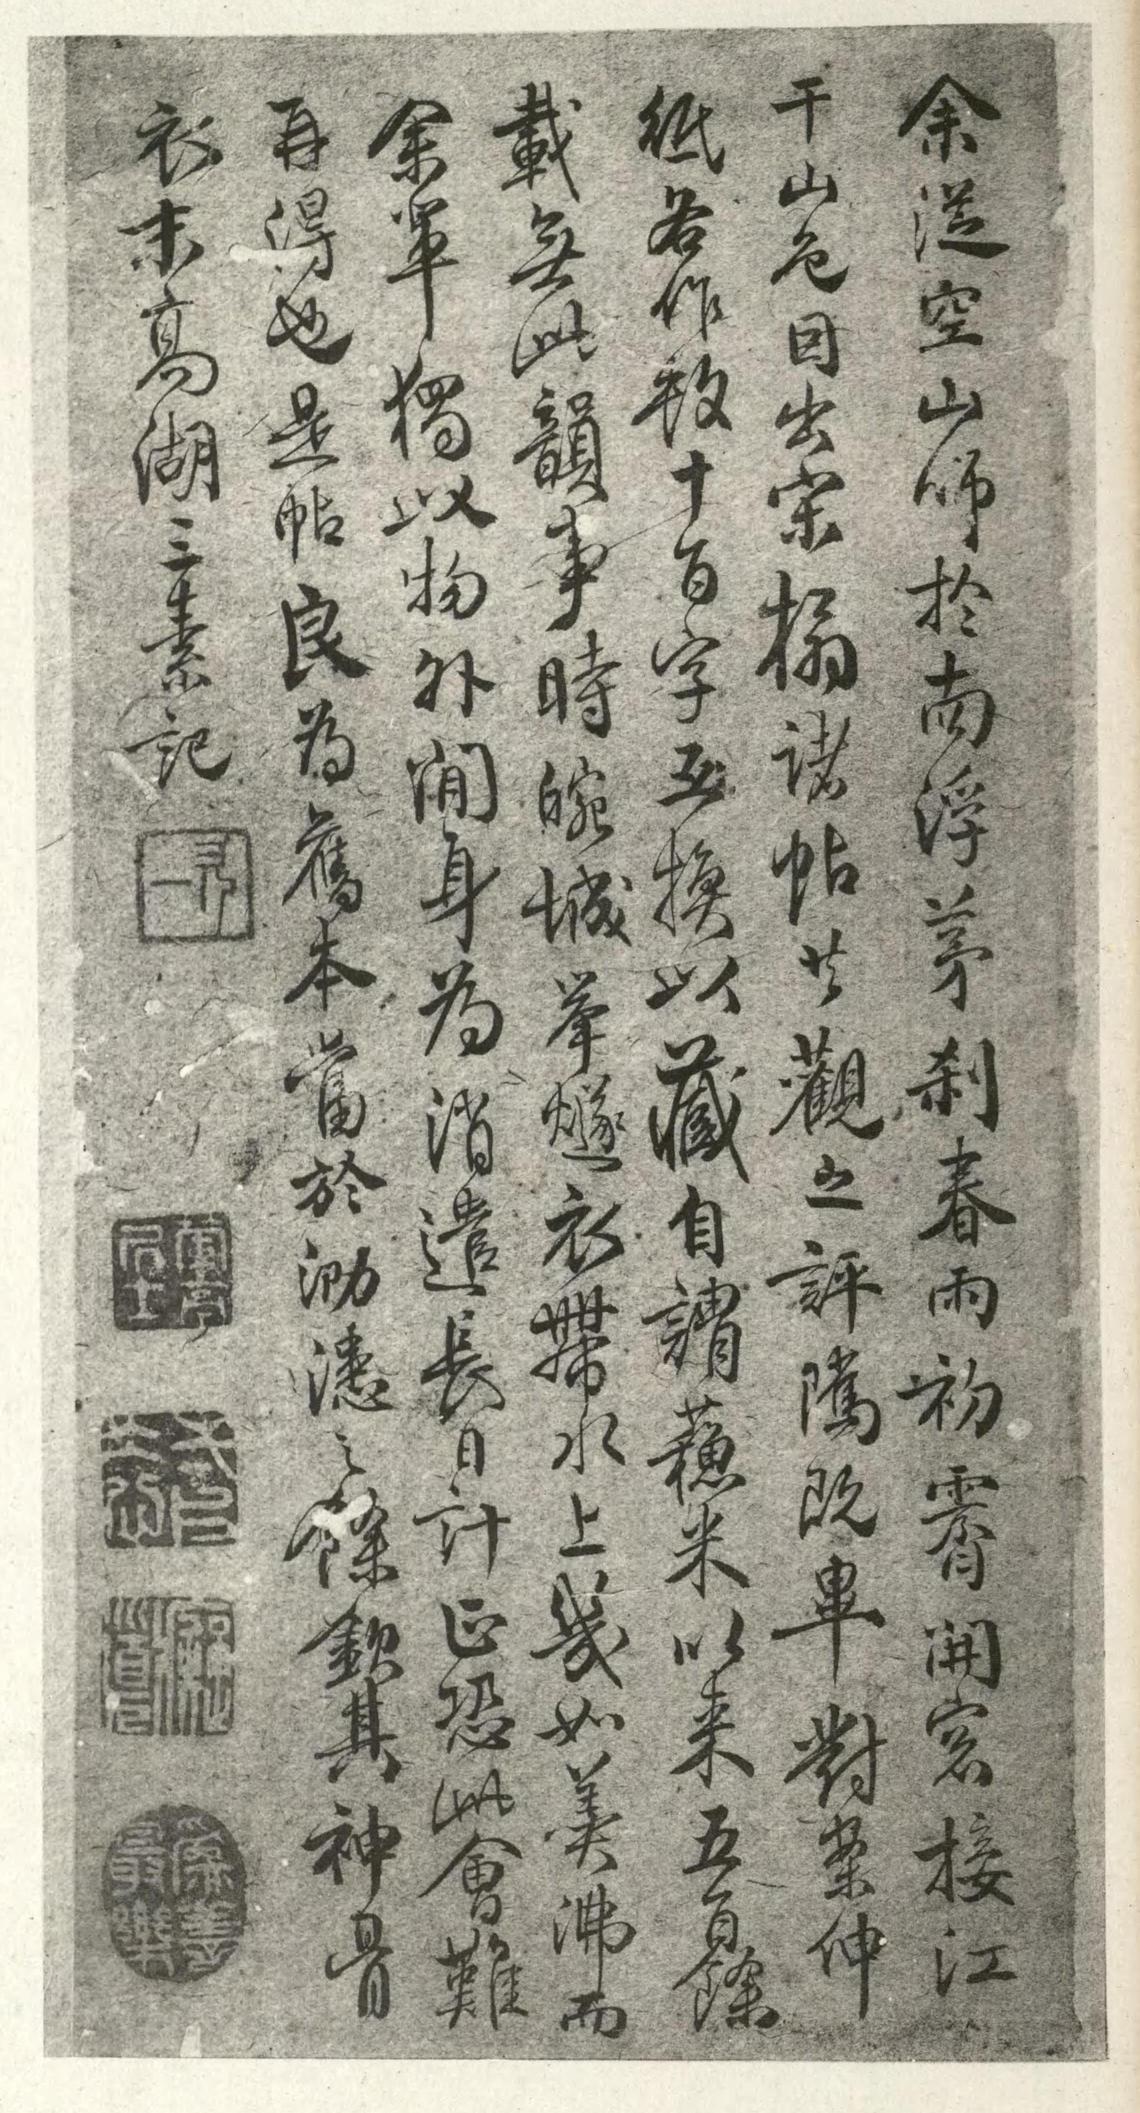 余從空山師於南浮茅刹春雨初霽開窓接江
干山色因出宋搨諸帖共觀之評隲既畢對案伸
紙各作數十百字互換以藏自謂蘇米以来五百餘
載無此韻事時皖城举燧衣帶水上幾如羹沸而
余輩獨以物外閒身為消遣長日計正恐此會難
再得也是帖良為舊本當於泐漶之餘欽其神骨
衣末高湖三素記